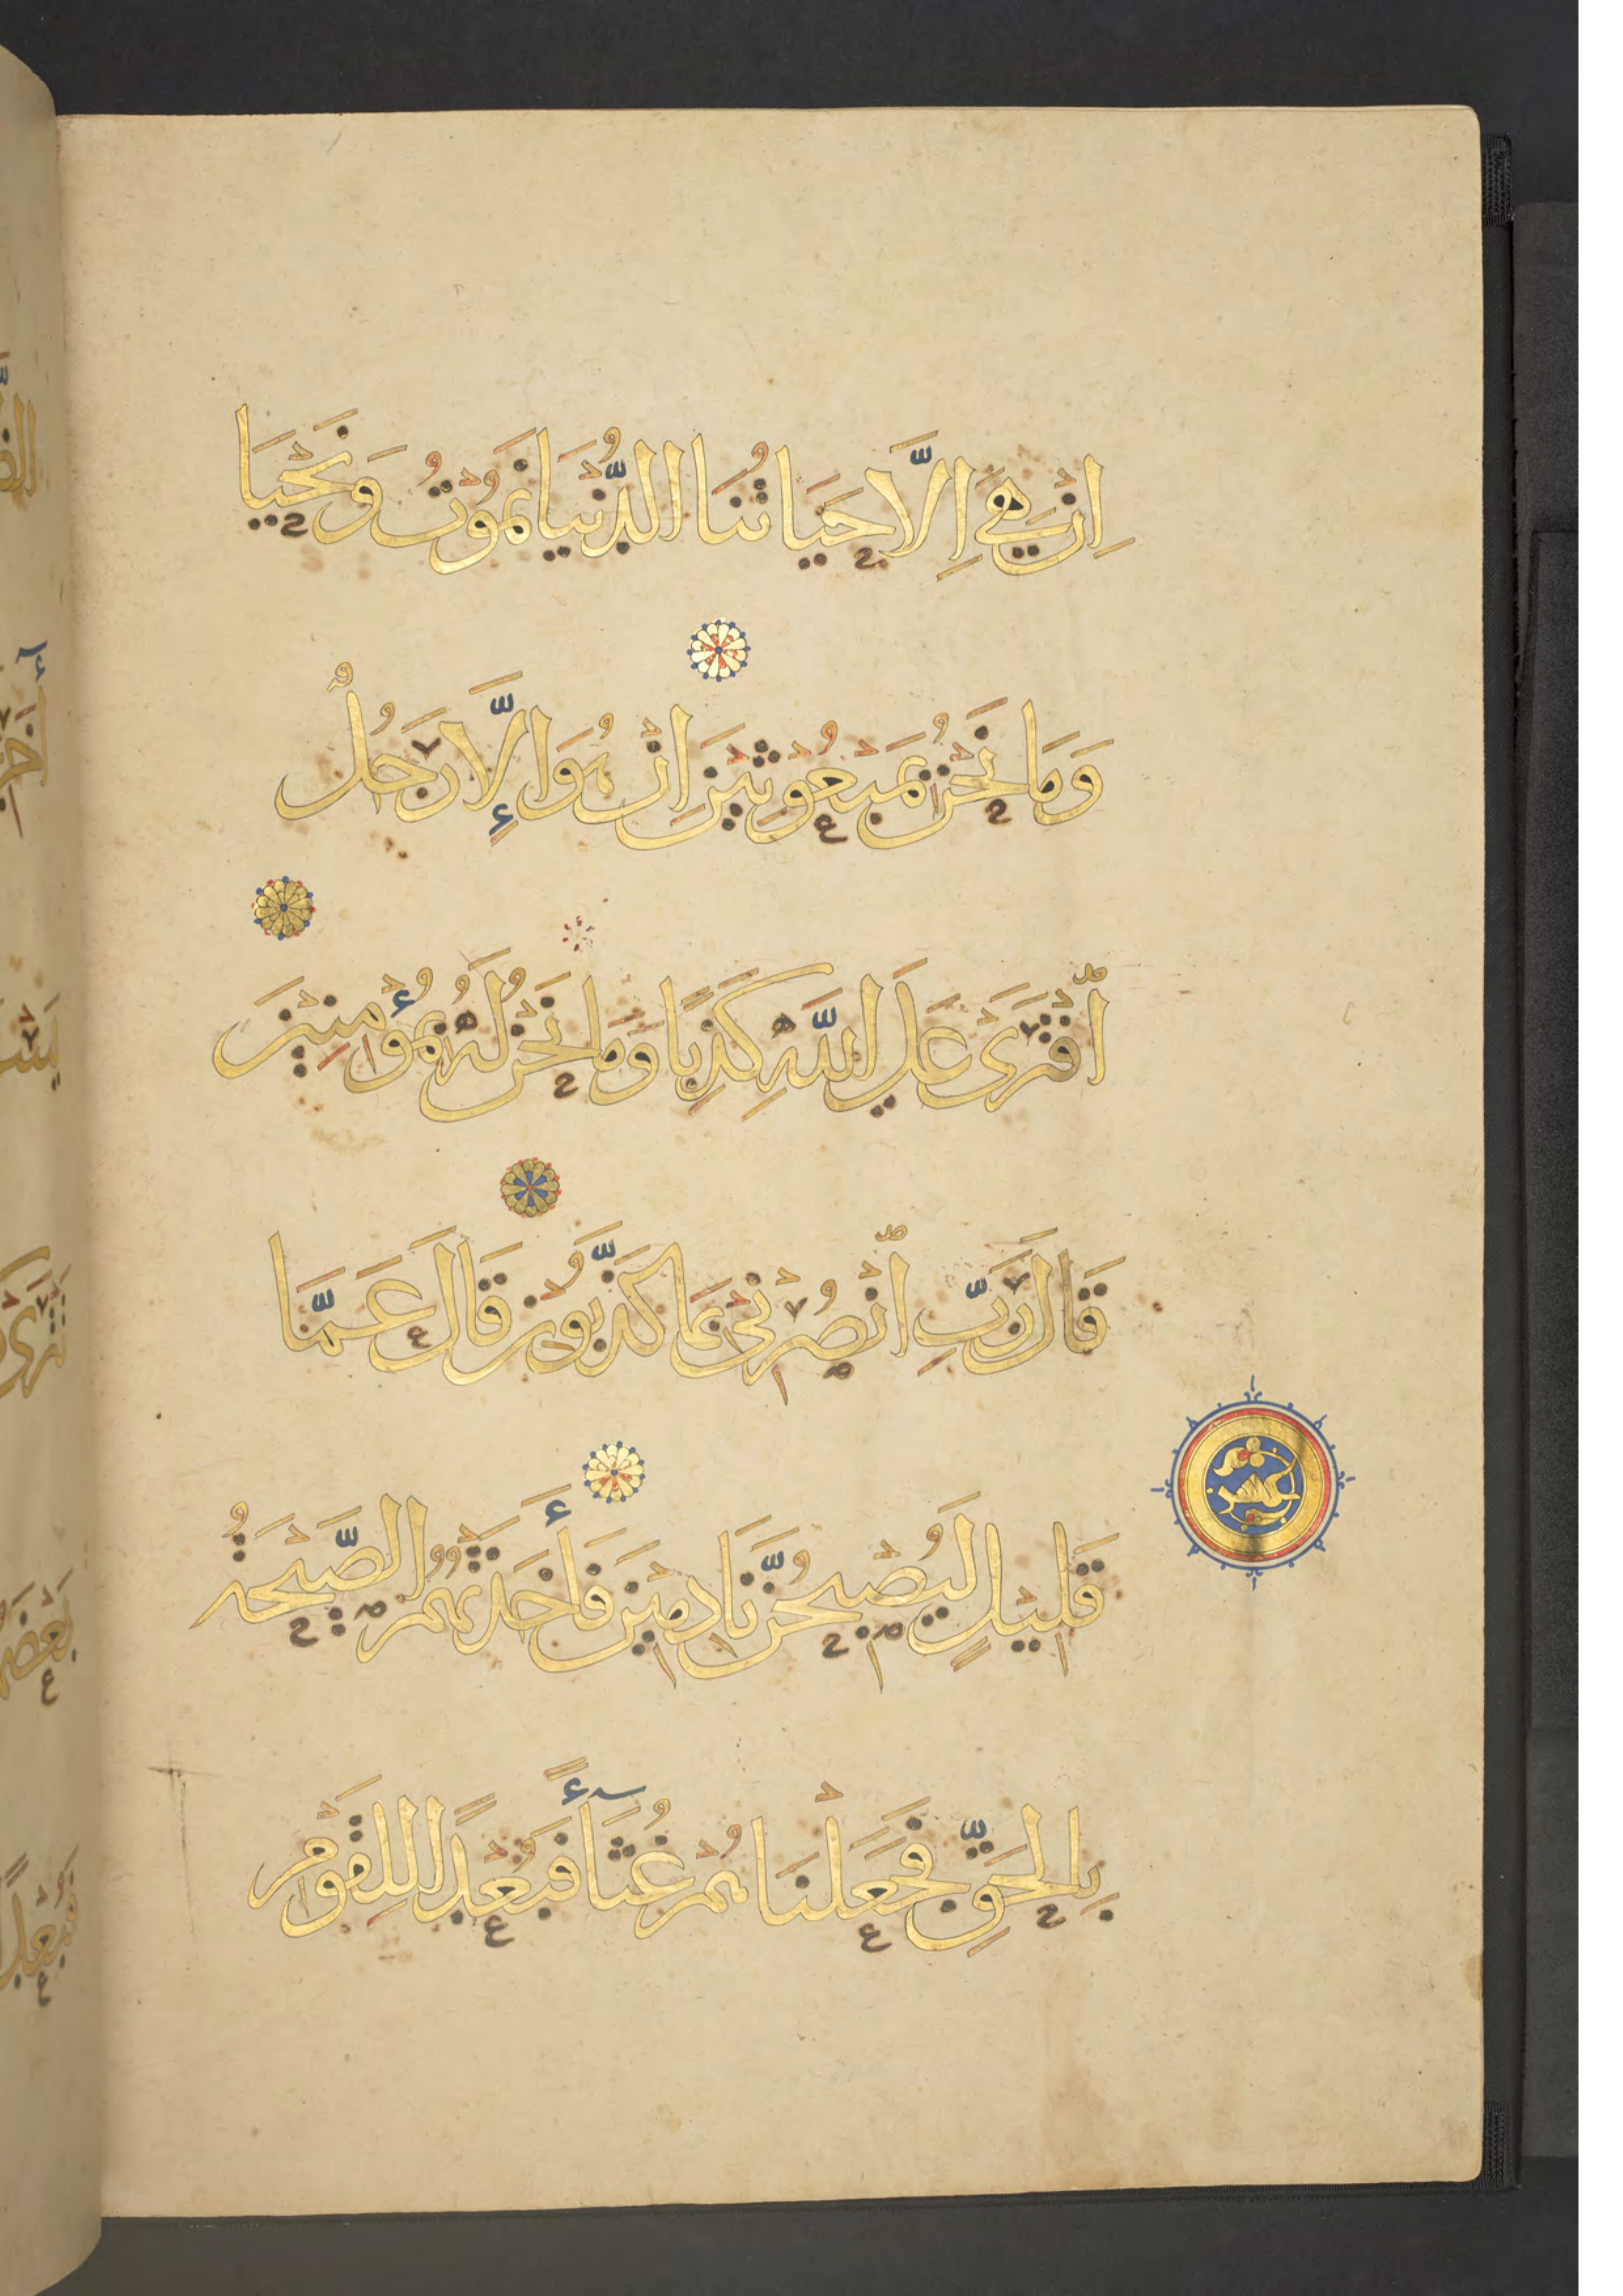 اِنْ هِيَ اِلَّا حَيَاتُنَا الدُّنْيَا نَمُوْتُ وَنَحْيَا
وَمَا نَحْنُ بِمَبْعُوْثِيْنَ اِنْ هُوَ اِلَّا رَجُلٌ
اَفْتَرَىٰ عَلَى اللَّهِ كَذِبًا وَمَا نَحْنُ لَهُ بِمُؤْمِنِيْنَ
قَالَ رَبِّ انْصُرْنِيْ بِمَا كَذَّبُوْنِ قَالَ عَمَّا
قَلِيْلٍ لَيُصْبِحُنَّ نَادِمِيْنَ فَأَخَذَتْهُمُ الصَّيْحَةُ
بِالْحَقِّ فَجَعَلْنَاهُمْ غُثَاءً فَبُعْدًا لِلْقَوْمِ
عشر